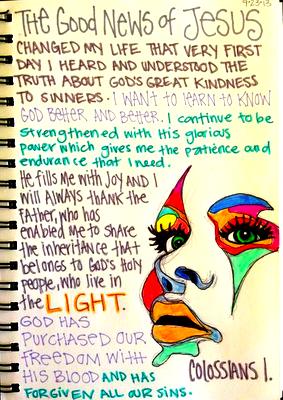 9-23-13
THE GOOD NEWS OF JESUS
CHANGED MY LIFE THAT VERY FIRST
DAY I HEARD AND UNDERSTOOD THE
TRUTH ABOUT GOD'S GREAT KINDNESS
TO SINNERS. I WANT TO LEARN TO KNOW
GOD BETTER AND BETTER. I continue to be
strengthened with His glorious
power which gives me the patience and
endurance that I need.
He fills me with Joy AND I
will ALWAYS thANK the
father, who has
enabled me to share
the inheritance that
belongs to God's Holy
people, who live in
the LIGHT.
GOD HAS
PURCHASED OUR
FREEDOM WITH
HIS BLOOD AND HAS
FORGIVEN ALL OUR SINS.
COLOSSIANS 1.